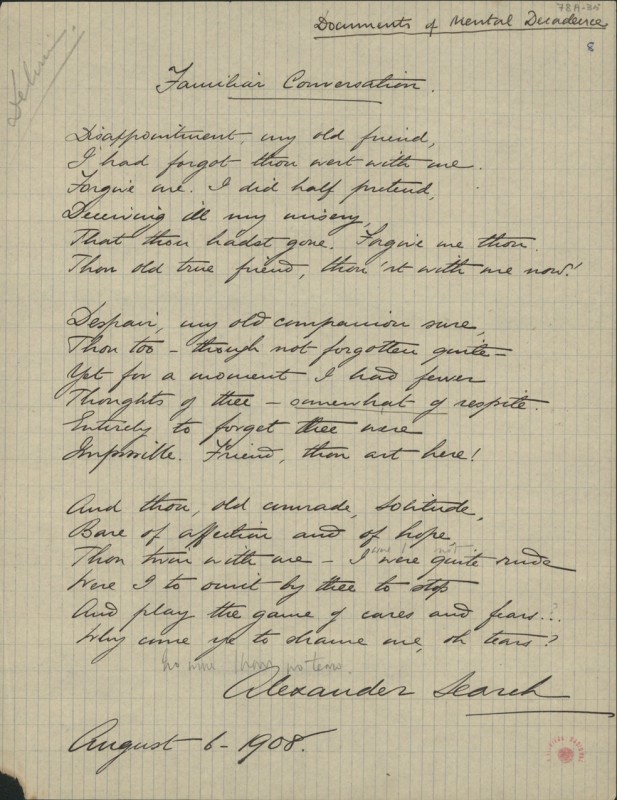 78A-35
Documents of Mental Decadence
8
Delirium.
Familiar Conversation.
Disappointment, my old friend,
I had forgot thou wert with me.
Forgive me. I did half pretend,
Deceiving ill my misery,
That thou hadst gone. Forgive me thou.
Thou old true friend, thou 'rt with me now!
Despair, my old companion sure,
Thou too – though not forgotten quite –
Yet for a moment I had fewer
Thoughts of thee – somewhat of respite.
Entirely to forget thee were
Impossible. Friend, thou art here!
And thou, old comrade, Solitude,
Bare of affection and of hope,
not
Thou twin with me – I were quite rude
Were I to omit by thee to stop
And play the game of cares and fears...
Why come ye to shame me, oh tears?
no tears.
Alexander Search
August 6 – 1908.